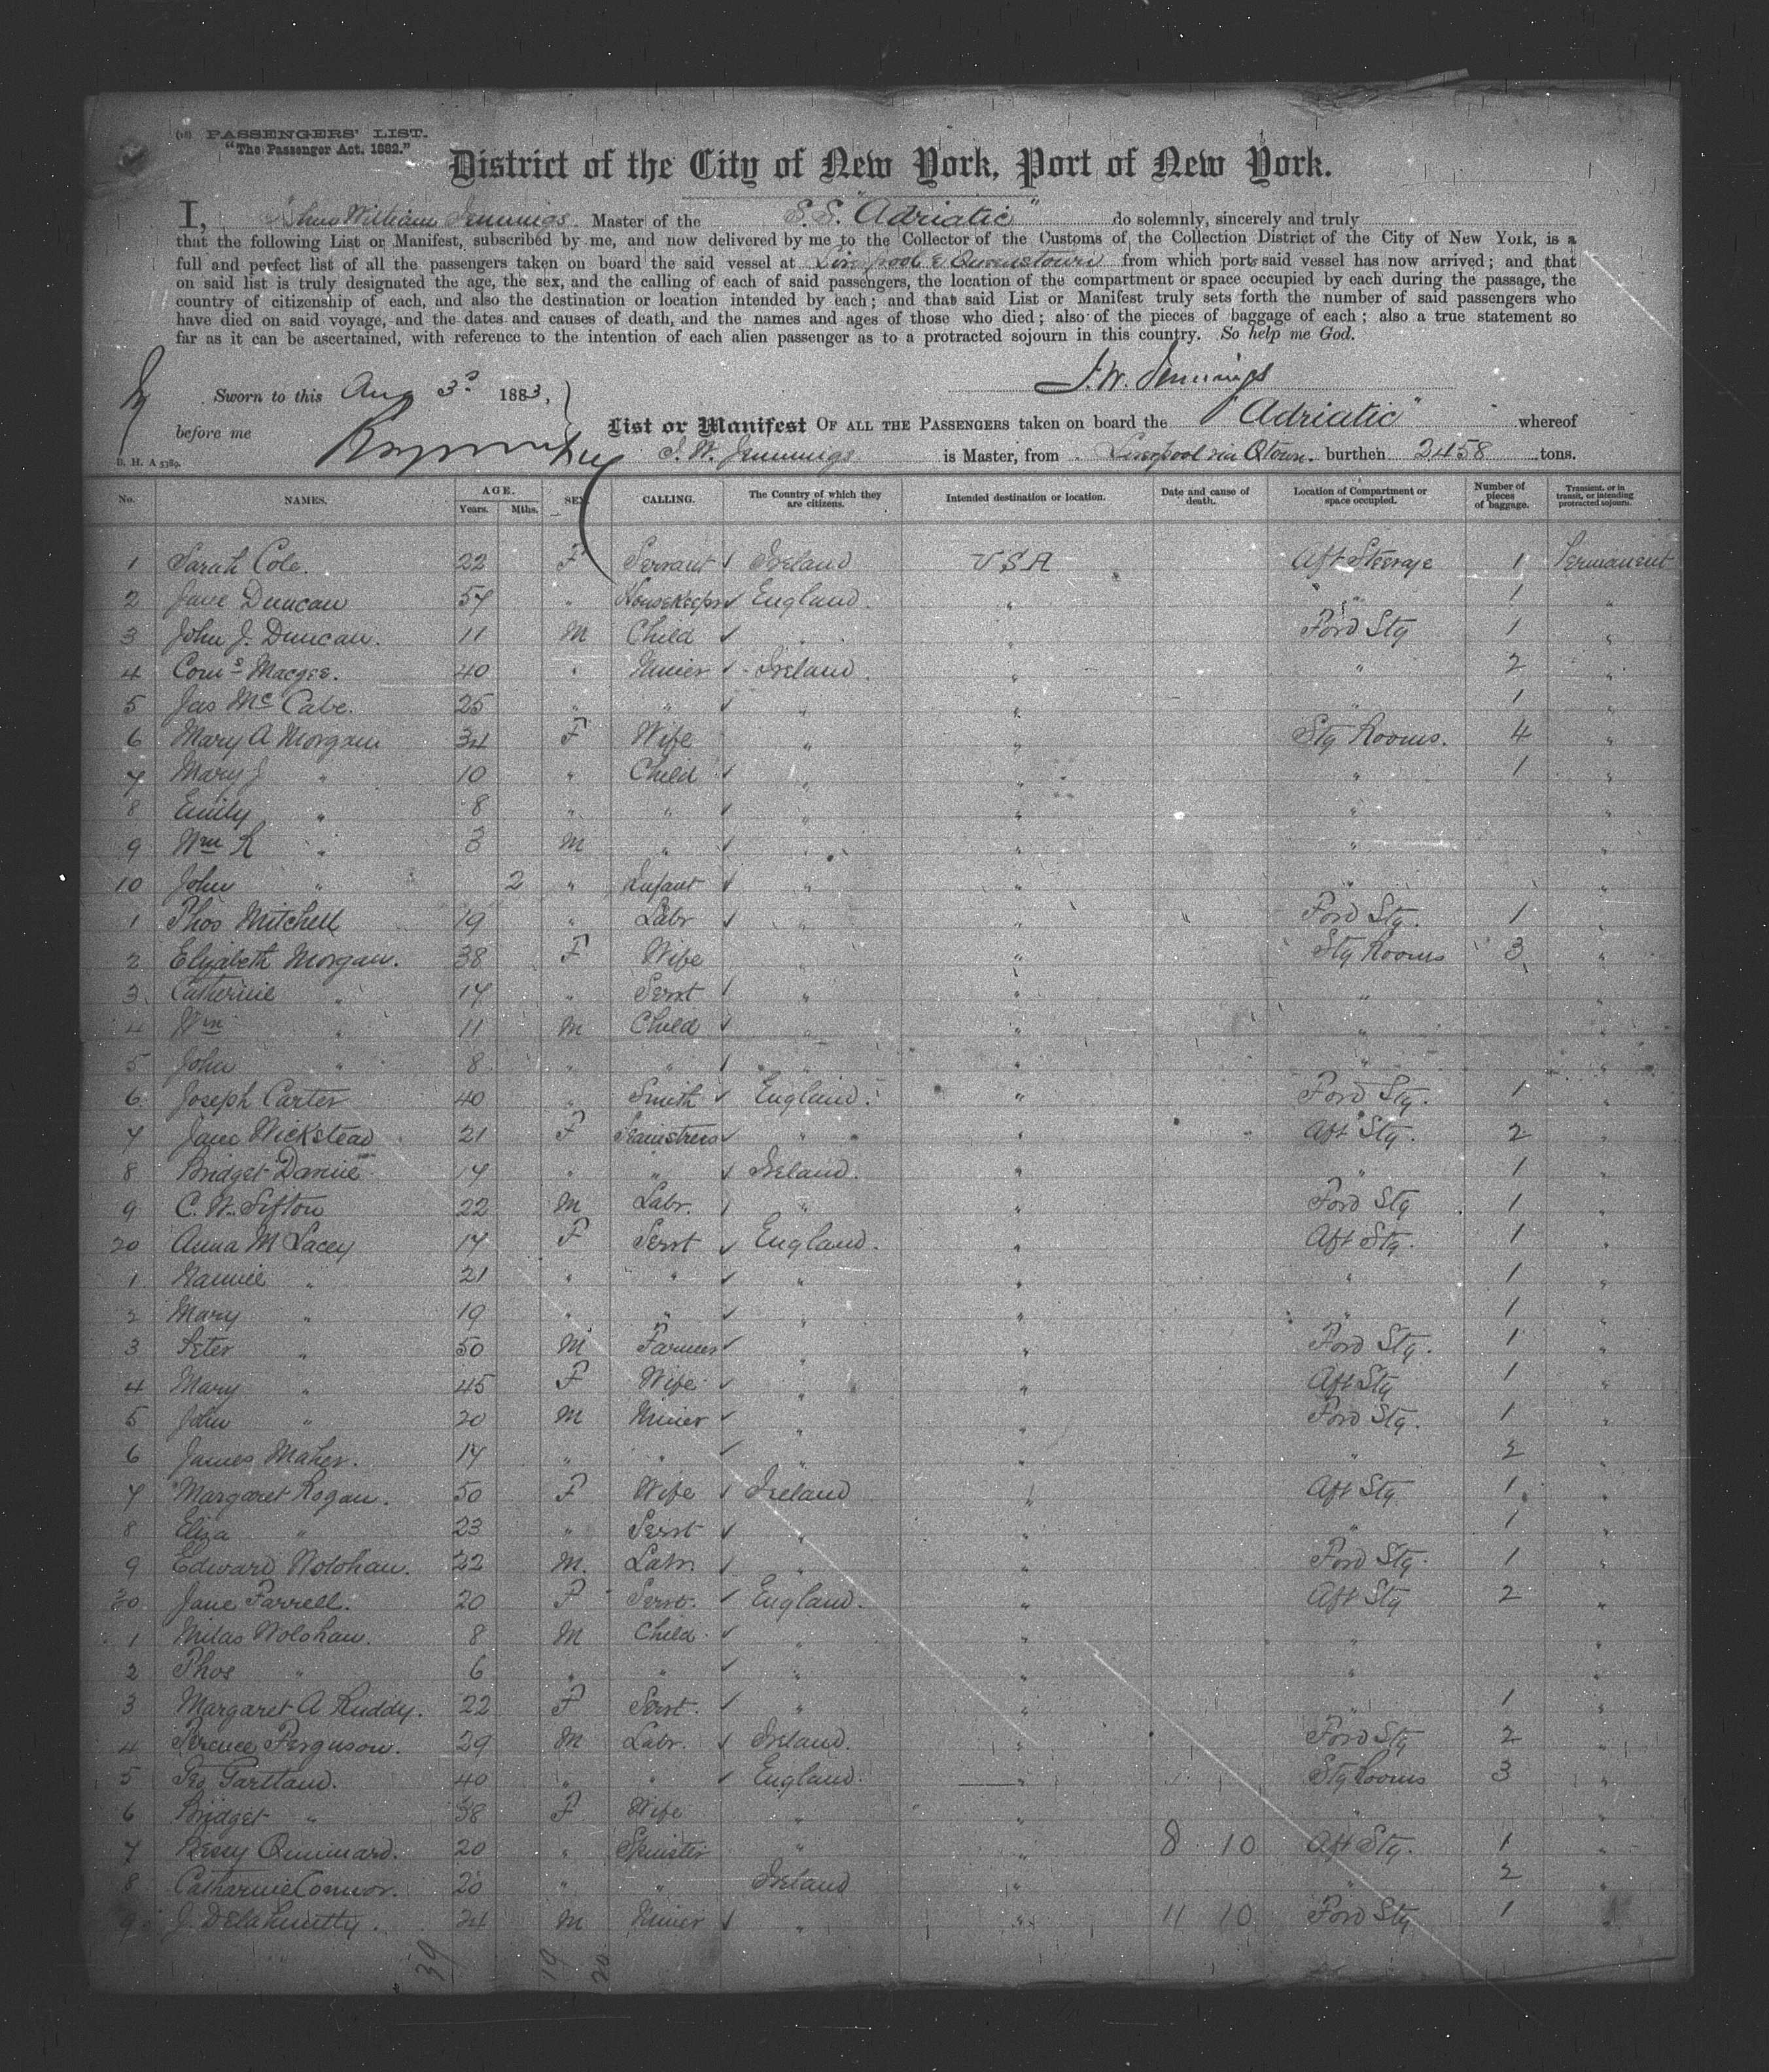 (18) PASSENGERS' LIST.
"The Passenger Act, 1882."
District of the City of New York, Port of New York.
I, William Jennings Master of the S.S. "Adriatic" do solemnly, sincerely and truly
that the following List or Manifest, subscribed by me, and now delivered by me to the Collector of the Customs of the Collection District of the City of New York, is a
full and perfect list of all the passengers taken on board the said vessel at Liverpool & Queenstown from which ports said vessel has now arrived; and that
on said list is truly designated the age, the sex, and the calling of each of said passengers, the location of the compartment or space occupied by each during the passage, the
country of citizenship of each, and also the destination or location intended by each; and that said List or Manifest truly sets forth the number of said passengers who
have died on said voyage, and the dates and causes of death, and the names and ages of those who died; also of the pieces of baggage of each; also a true statement so
far as it can be ascertained, with reference to the intention of each alien passenger as to a protracted sojourn in this country. So help me God.
J. W. Jennings
Sworn to this Aug 3d 1883,
before me
List or Manifest OF ALL THE PASSENGERS taken on board the "Adriatic" whereof
B. H. A 5789.
J. W. Jennings is Master, from Liverpool via Qtown. burthen 2458 tons.
No. NAMES. AGE. Years. Mths. SEX. CALLING. The Country of which they are citizens. Intended destination or location. Date and cause of death. Location of Compartment or space occupied. Number of pieces of baggage. Transient, or in transit, or intending protracted sojourn.
1 Sarah Cole. 22 F Servant ✓ Ireland USA Aft Steerage 1 Permanent
2 Jane Duncan 57 " Housekeeper ✓ England. " " 1 "
3 John J. Duncan. 11 M Child ✓ " " Ford Stg 1 "
4 Corns Macgee. 40 " Miner ✓ Ireland. " " 2 "
5 Jas McCabe. 25 " " ✓ " " " 1 "
6 Mary A Morgan 34 F Wife " " Stg Rooms. 4 "
7 Mary J " 10 " Child ✓ " " " 1 "
8 Emily " 8 " " ✓ " " " "
9 Wm R " 3 M " ✓ " " " "
10 John " 2 " Infant ✓ " " " "
1 Thos Mitchell 19 " Labr ✓ " " Ford Stg. 1 "
2 Elizabeth Morgan. 38 F Wife " " Stg Rooms 3 "
3 Catherine " 17 " Servt ✓ " " " "
4 Wm " 11 M Child ✓ " " " "
5 John " 8 " " ✓ " " " "
6 Joseph Carter 40 " Smith ✓ England. " Ford Stg. 1 "
7 Jane Wickstead 21 F Seamstress ✓ " " Aft Stg. 2 "
8 Bridget 17 " " ✓ Ireland. " " 1 "
9 C. W. Sifton 22 M Labr. ✓ " " Ford Stg 1 "
20 Anna M Lacey 17 F Servt ✓ England. " Aft Stg. 1 "
1 " 21 " " ✓ " " " 1 "
2 Mary " 19 " " ✓ " " " 1 "
3 Peter " 50 M Farmer ✓ " " Ford Stg. 1 "
4 Mary " 45 F Wife ✓ " " Aft Stg 1 "
5 John " 20 M Miner ✓ " " Ford Stg. 1 "
6 James Maher. 17 " " ✓ " " " 2 "
7 Margaret Rogan. 50 F Wife ✓ Ireland " Aft Stg 1 "
8 Eliza " 23 " Servt ✓ " " " 1 "
9 Edward Wolohan. 22 M. Labr. ✓ " " Ford Stg. 1 "
30 Jane Farrell. 20 F Servt. ✓ England. " Aft Stg 2 "
1 Wolohan. 8 M Child ✓ " " " "
2 Thos " 6 " " ✓ " " " "
3 Margaret A Ruddy. 22 F Servt. ✓ " " " 1 "
4 Terence Ferguson. 29 M Labr. ✓ Ireland. " Ford Stg 2 "
5 Gartland. 40 " " ✓ England. " Stg Rooms 3 "
6 Bridget " 38 F Wife " " " "
7 20 " Spinster " " 8 10 Aft Stg. 1 "
8 Catharine Connor. 20 " " Ireland " " 2 "
9 J. Delahuntty. 24 M Miner ✓ " " 11 10 Ford Stg 1 "
39 19 20